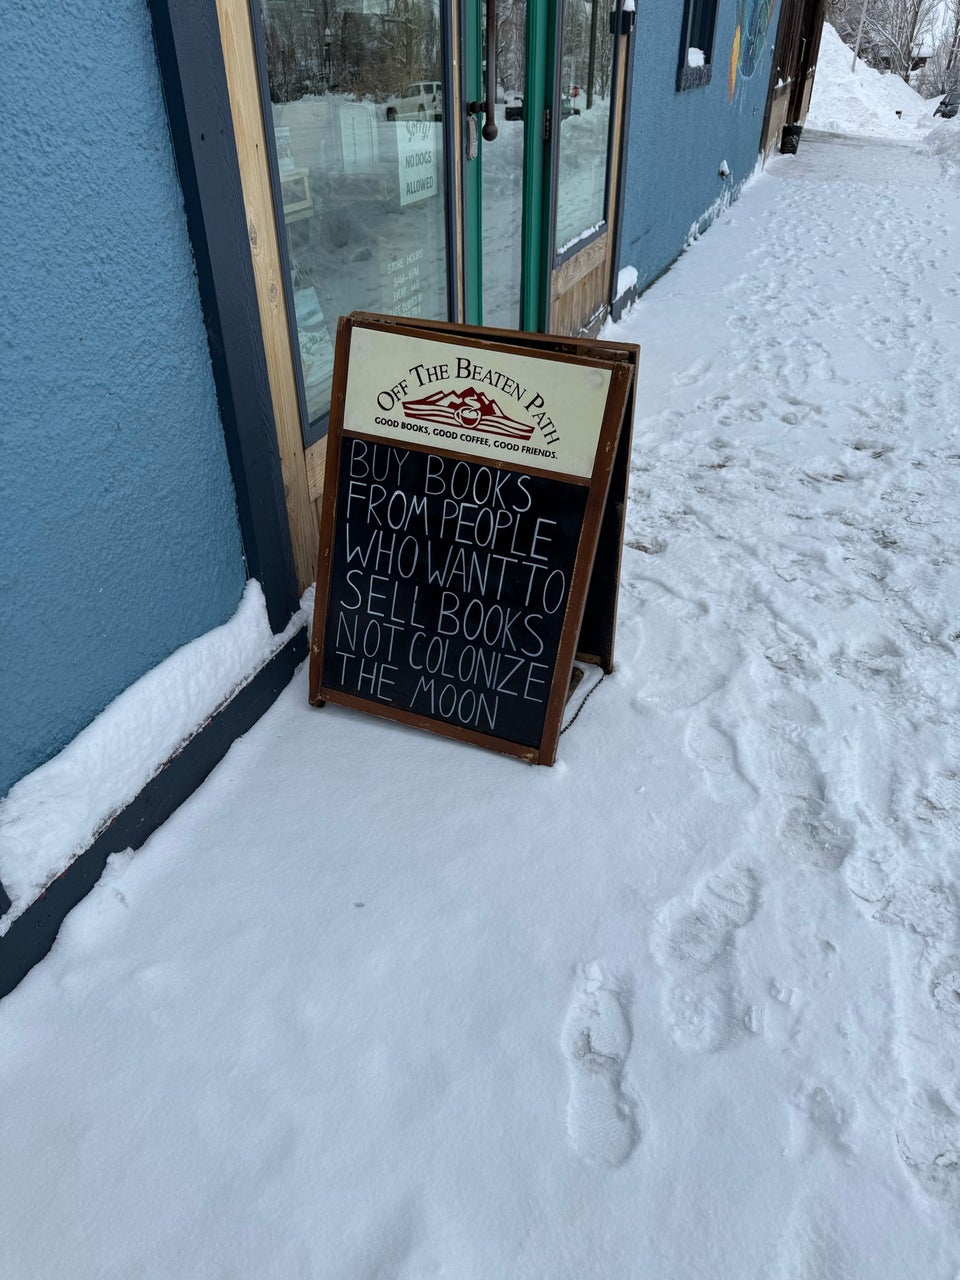 Sorry!
NO DOGS
ALLOWED
STORE HOURS
8AM-6PM
EVERY
OFF THE BEATEN PATH
GOOD BOOKS, GOOD COFFEE, GOOD FRIENDS.
BUY BOOKS
FROM PEOPLE
WHO WANT TO
SELL BOOKS
NOT COLONIZE
THE MOON